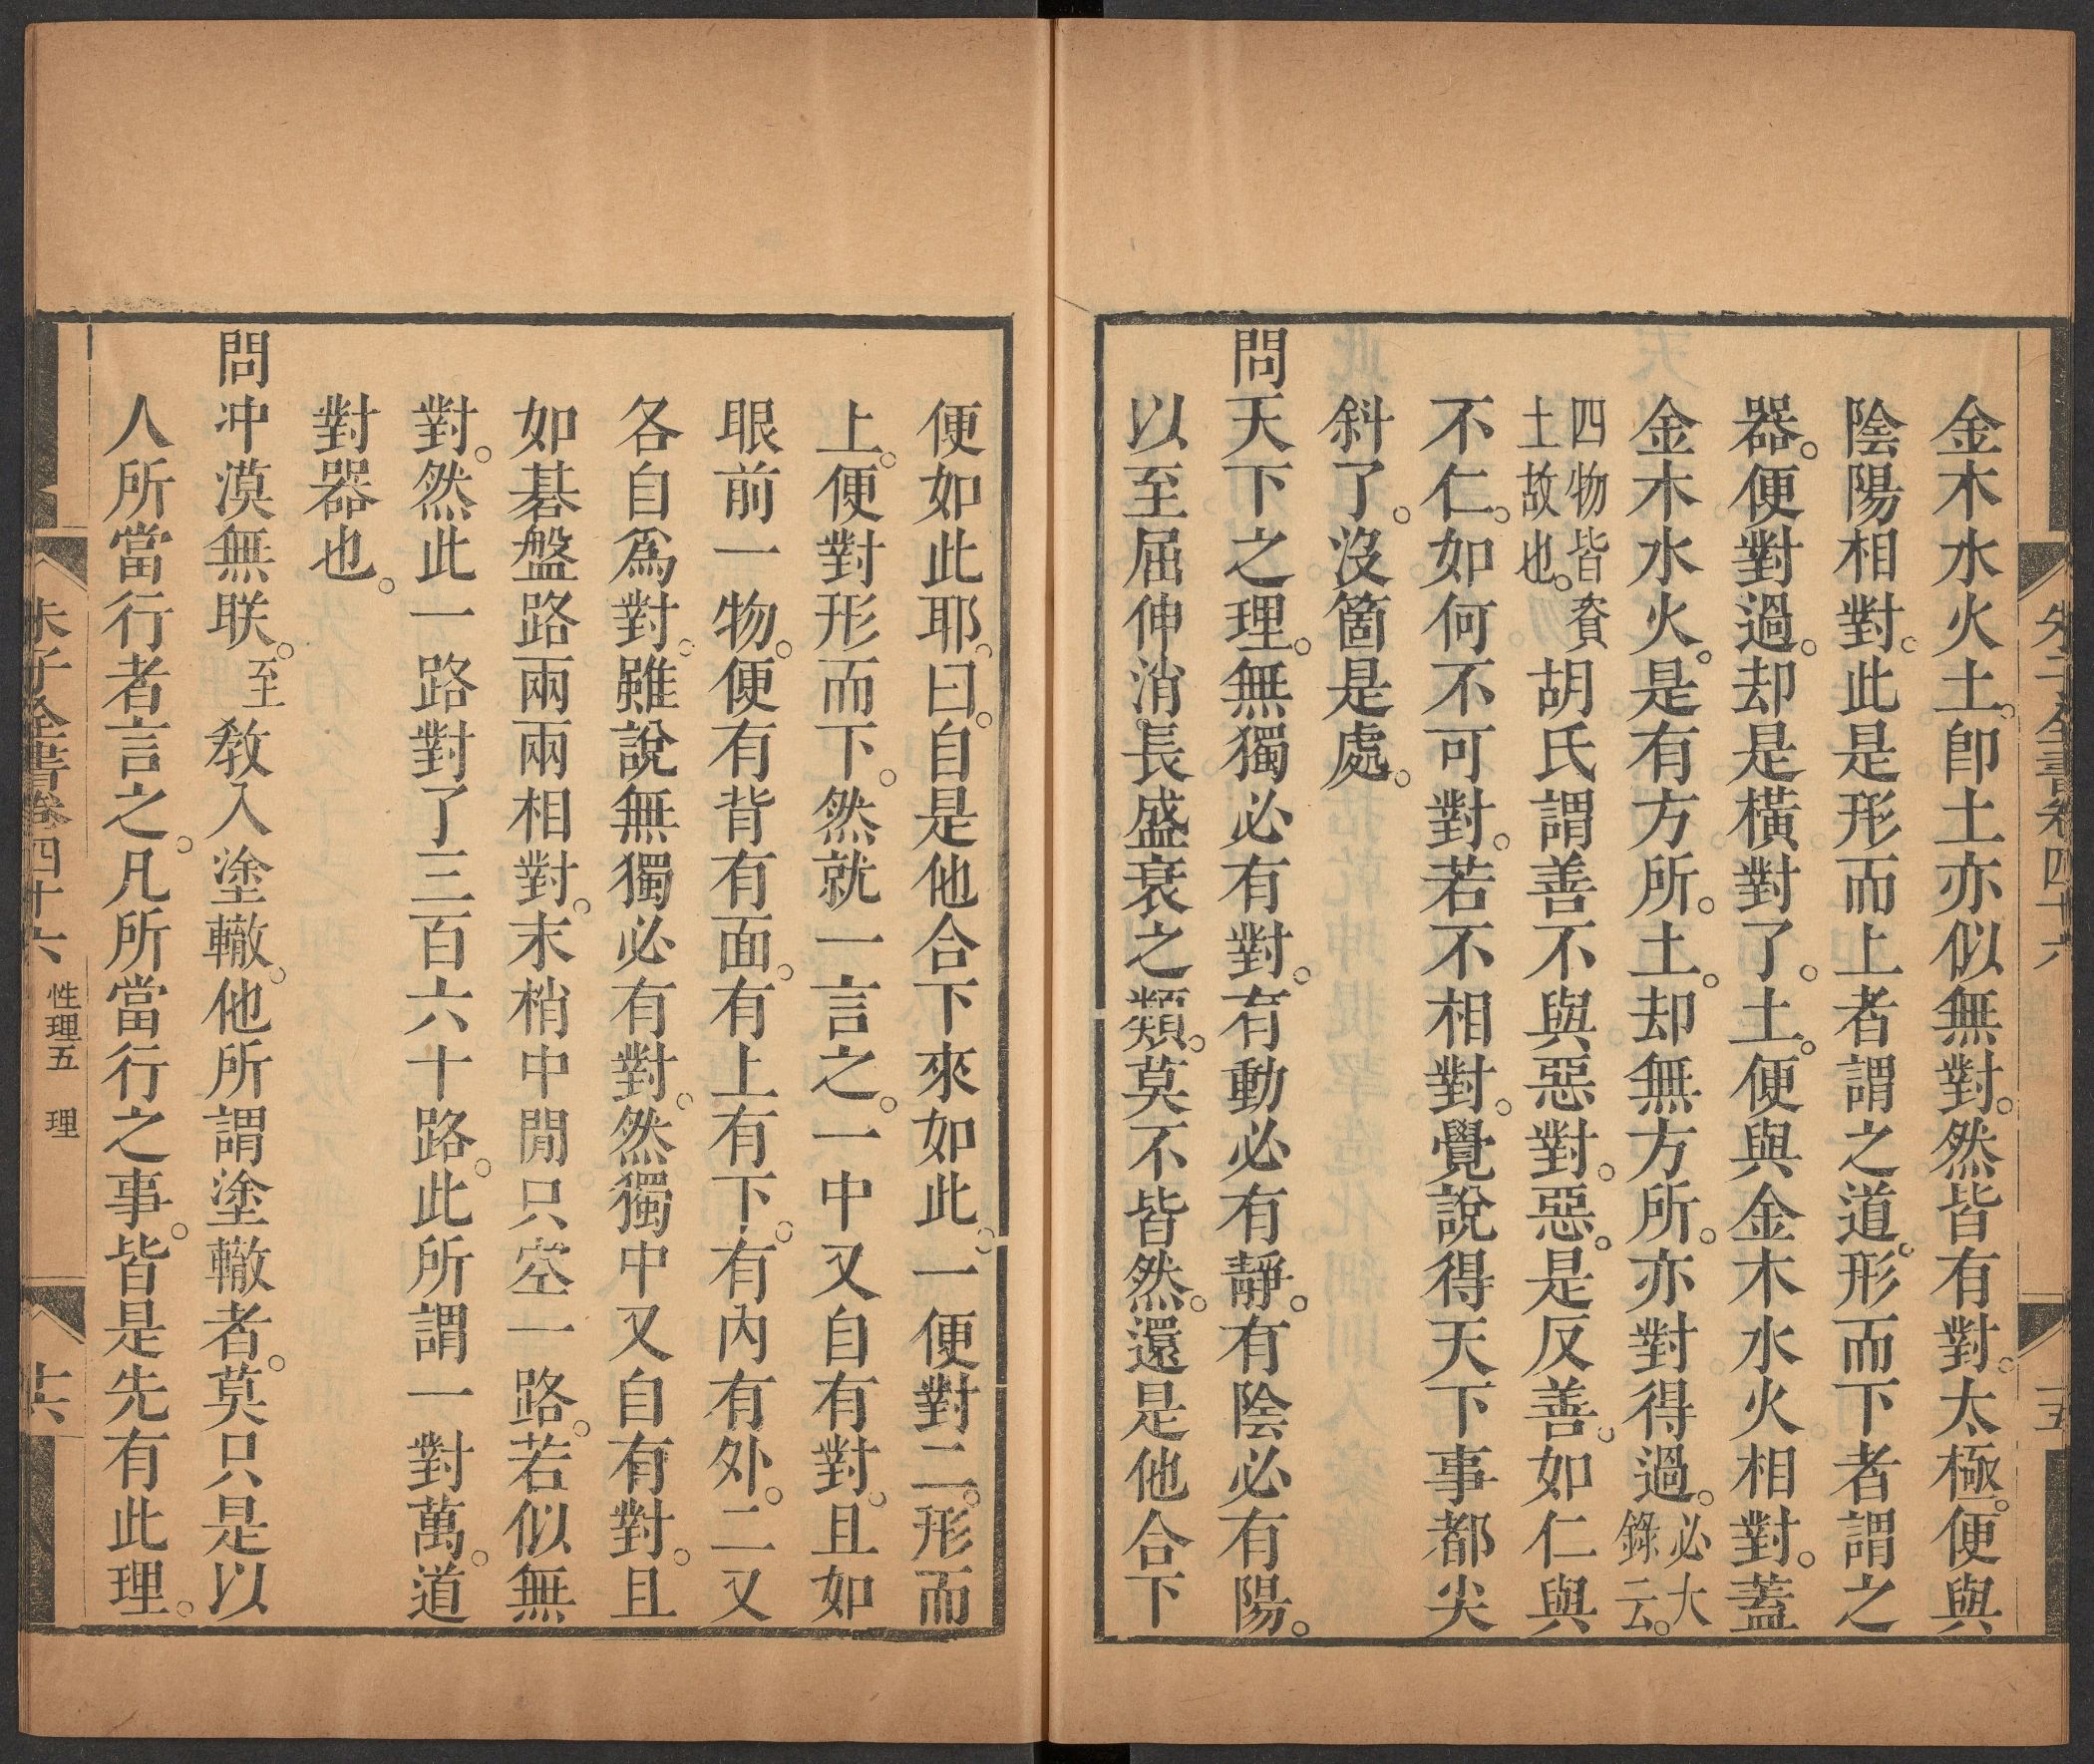 朱子全書卷四十六
十五
金木水火土。即土亦似無對。然皆有對。太極。便與
陰陽相對。此是形而上者謂之道。形而下者謂之
器。便對過。却是橫對了。土。便與金木水火相對。蓋
金木水火。是有方所。土。却無方所。亦對得過。必大錄云。
四物皆資土故也。胡氏謂善不與惡對。惡。是反善。如仁與
不仁。如何不可對。若不相對。覺說得天下事都尖
斜了。沒箇是處。
問天下之理。無獨必有對。有動必有靜。有陰必有陽。
以至屈伸消長盛衰之類。莫不皆然。還是他合下
便如此耶。曰。自是他合下來如此。一便對二。形而
上。便對形而下。然就一言之。一中又自有對。且如
眼前一物。便有背有面。有上有下。有內有外。二又
各自爲對。雖說無獨必有對。然獨中又自有對。且
如碁盤路兩兩相對。末梢中閒只空一路。若似無
對。然此一路對了三百六十路。此所謂一對萬。道
對器也。
問冲漠無朕。至教入塗轍。他所謂塗轍者。莫只是以
人所當行者言之。凡所當行之事。皆是先有此理。
朱子全書卷四十六 性理五 理
十六